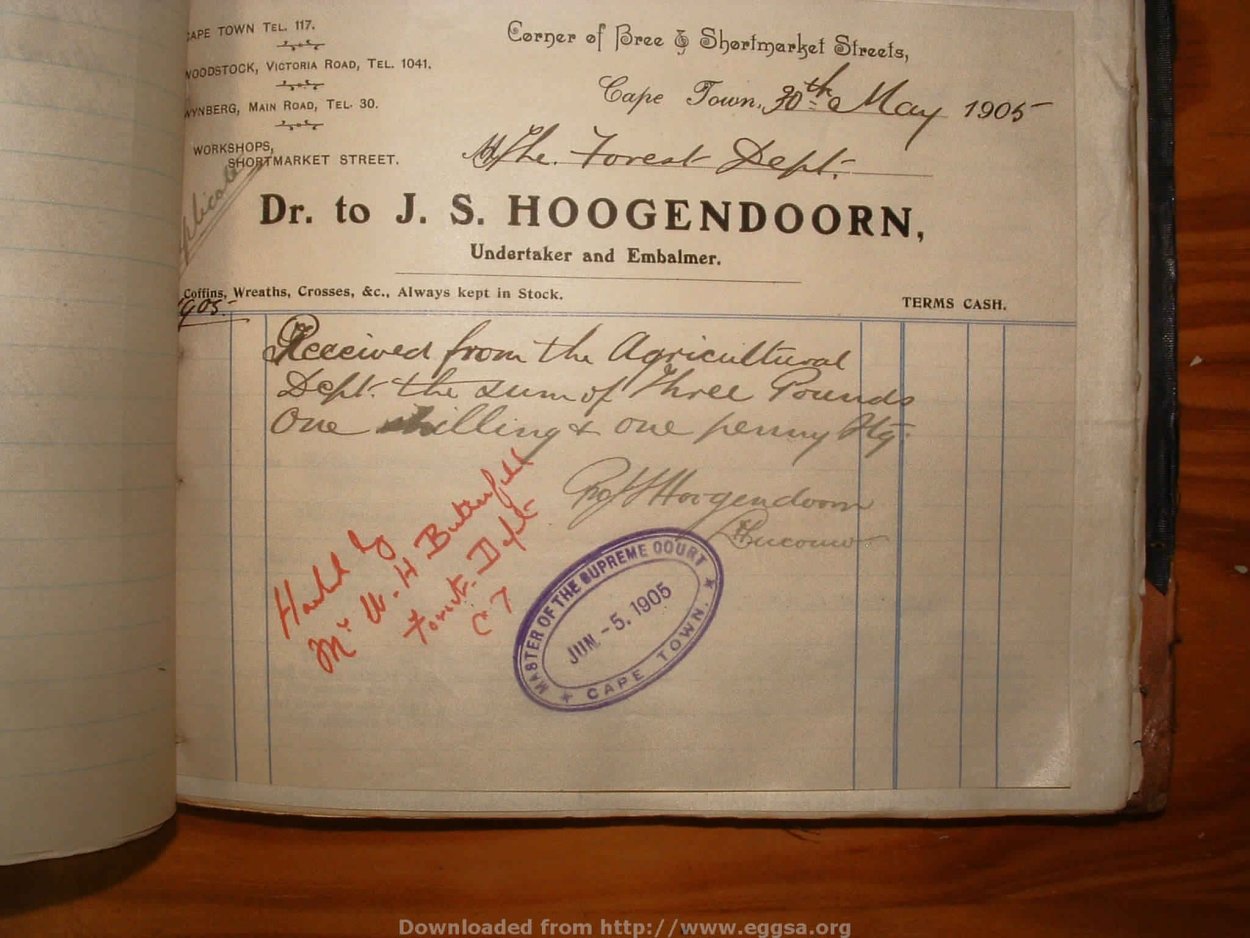 CAPE TOWN TEL. 117.
WOODSTOCK, VICTORIA ROAD, TEL. 1041.
WYNBERG, MAIN ROAD, TEL. 30.
WORKSHOPS,
SHORTMARKET STREET.
Corner of Bree & Shortmarket Streets,
Cape Town, 30th May 1905
M The Forest Dept.
Dr. to J. S. HOOGENDOORN,
Undertaker and Embalmer.
Coffins, Wreaths, Crosses, &c., Always kept in Stock.
TERMS CASH.
1905
Received from the Agricultural
Dept. the sum of Three Pounds
One shilling & one penny Stg.
Hoogendoorn
Handed by
Mr W. H Butterfield
Forest. Dept
C T
MASTER OF THE SUPREME COURT
JUN - 5. 1905
CAPE TOWN.
Downloaded from http://www.eggsa.org